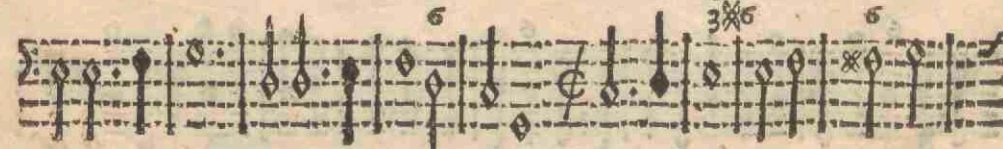 6 3※6 6